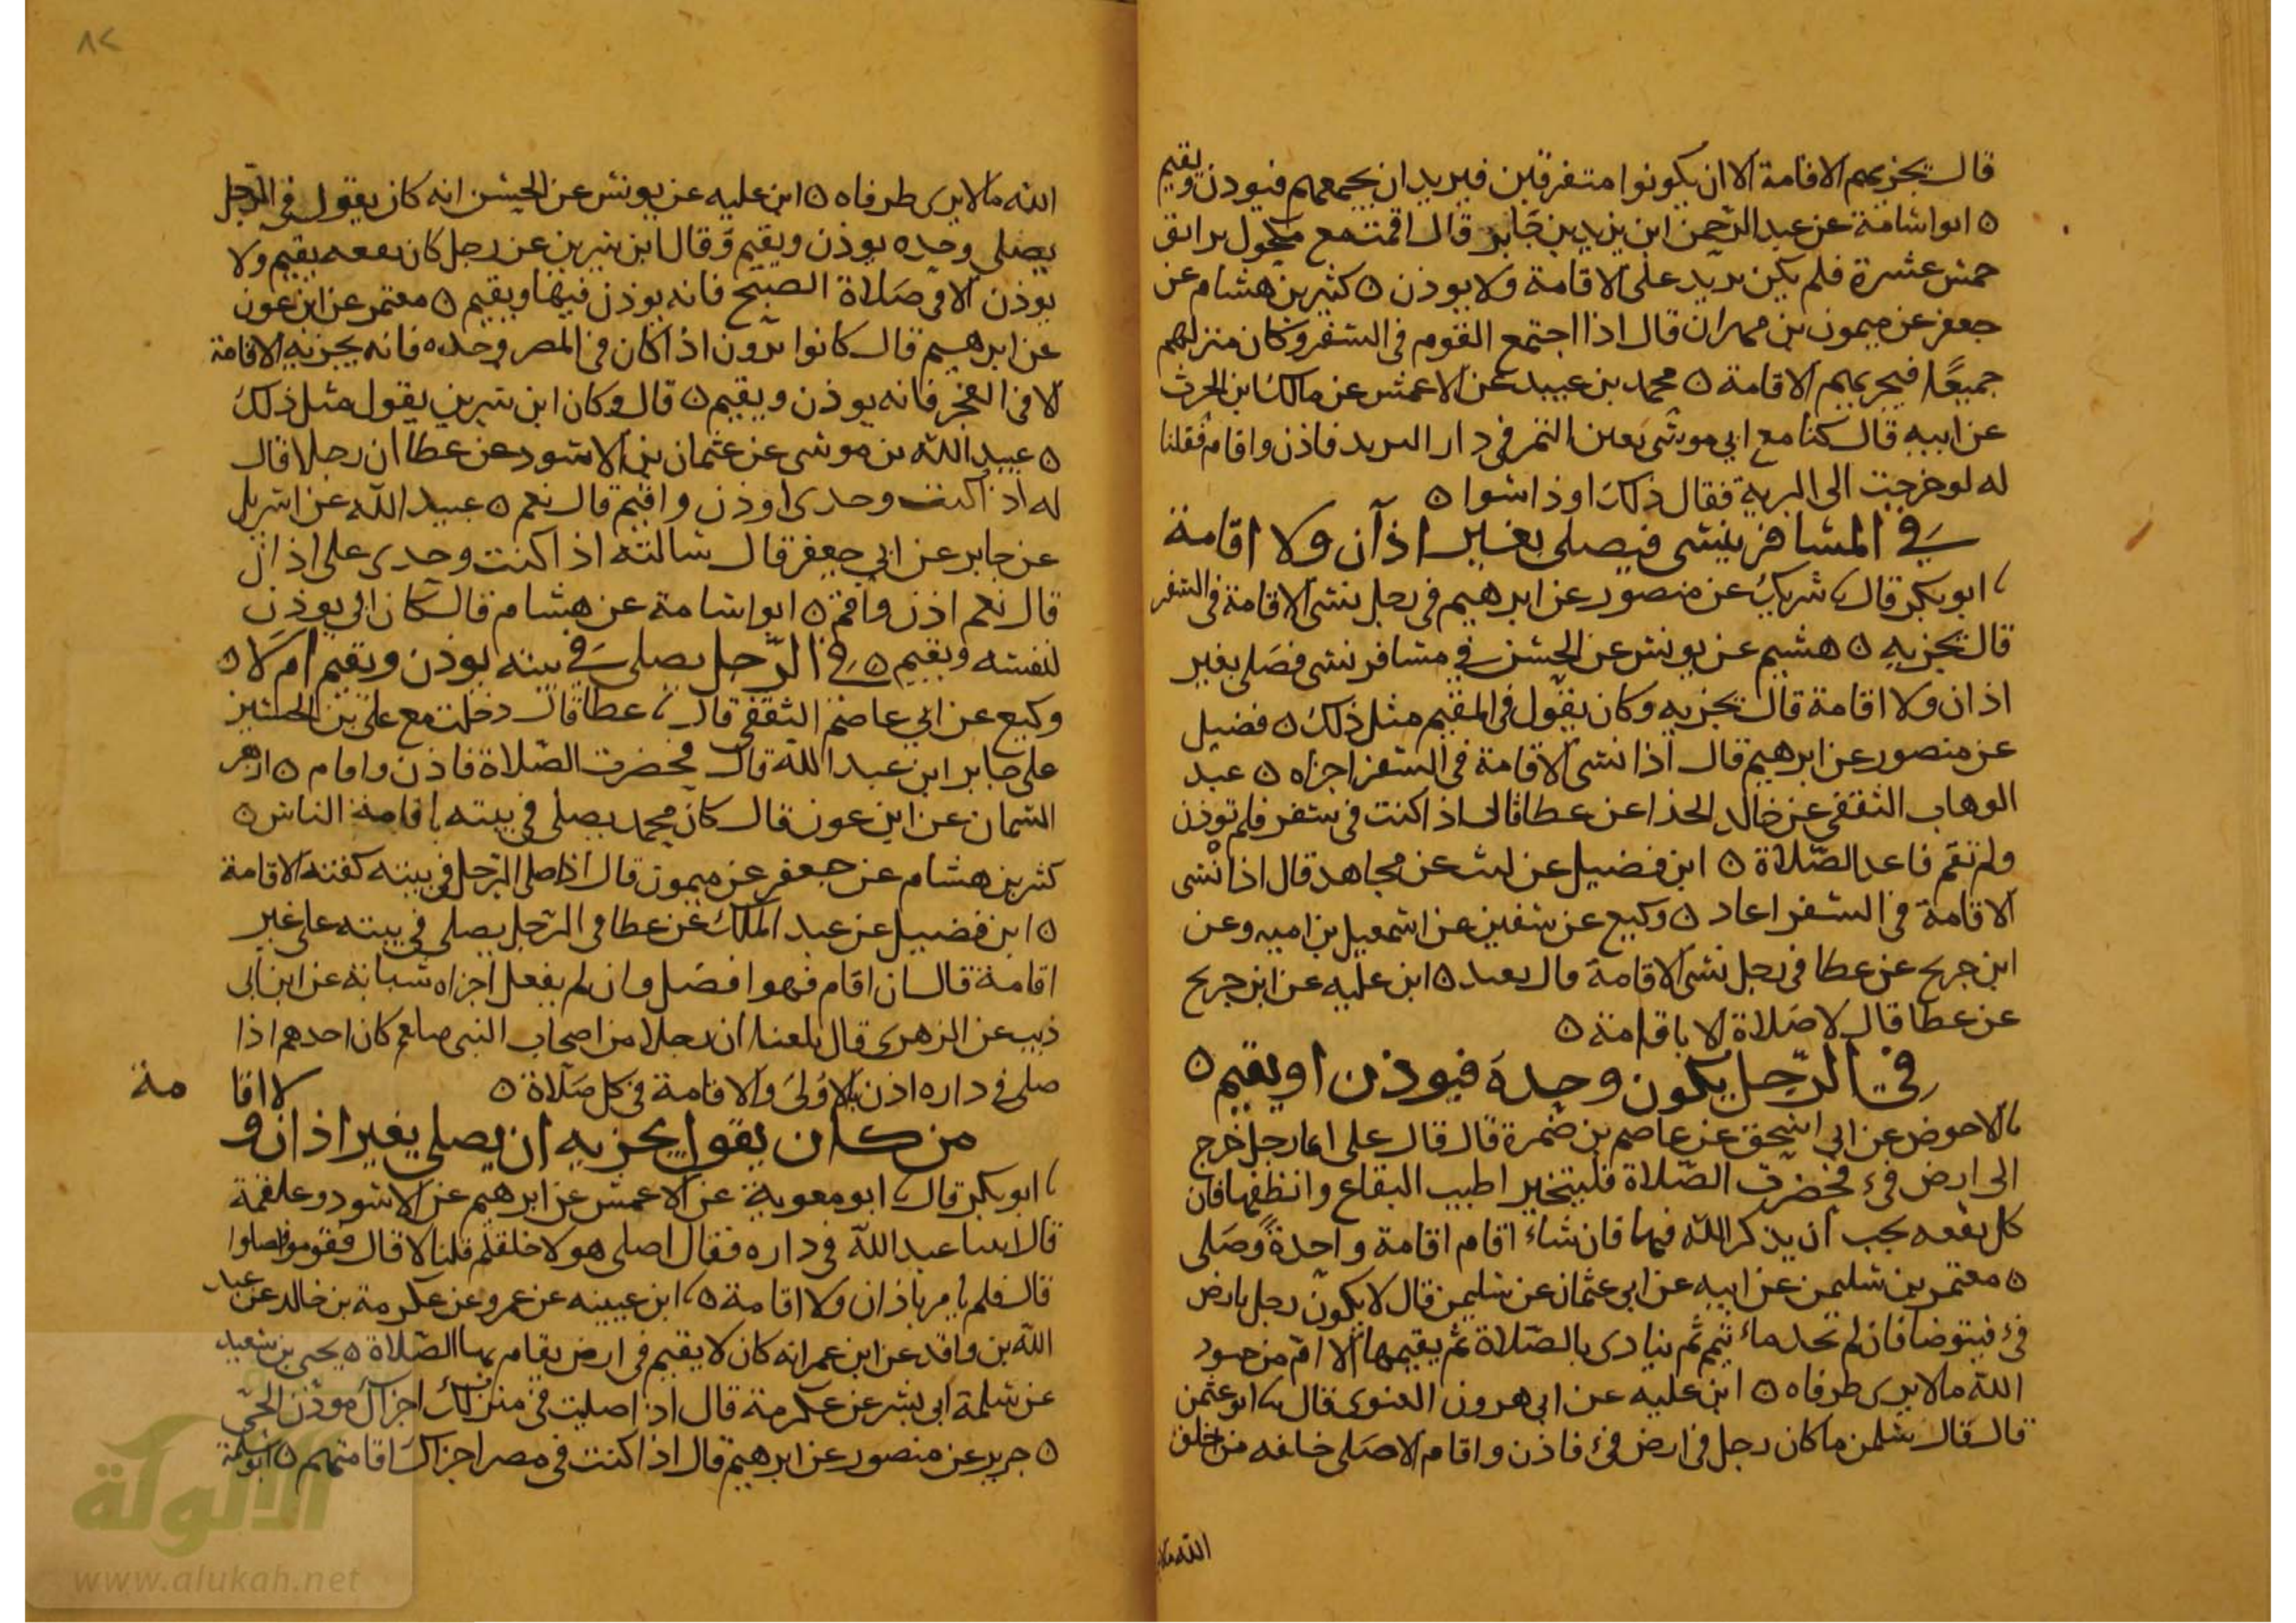 قال يجزيهم الاقامة الا ان يكونوا متفرقين فيريد ان يجمعهم فيوذن ويقيم
ه ابو اسامة عن عبد الرحمن ابن يزيد بن جابر قال اقمت مع مكحول بدابق
خمس عشرة فلم يكن يزيد على الاقامة ولا يوذن ه كثير بن هشام عن
جعفر عن ميمون بن مهران قال اذا اجتمع القوم في السفر وكان منزلهم
جميعًا فيجزيهم الاقامة ه محمد بن عبيد عن الاعمش عن مالك ابن الحرث
عن ابيه قال كنا مع ابي موسى بعين التمر في دار البريد فاذن واقام فقلنا
له لو خرجت الى البرية فقال ذلك وذا سوا ه
في المسافر ينسى فيصلي بغير اذان ولا اقامة
ابو بكر قال شريك عن منصور عن ابرهيم في رجل نسى الاقامة في السفر
قال يجزيه ه هشيم عن يونس عن الحسن في مسافر نسى فصلى بغير
اذان ولا اقامة قال يجزيه وكان يقول في المقيم مثل ذلك ه فضيل
عن منصور عن ابرهيم قال اذا نسى الاقامة في السفر اجزاه ه عبد
الوهاب الثقفي عن خالد الحذا عن عطا قال اذا كنت في سفر فلم توذن
ولم تقم فاعد الصلاة ه ابن فضيل عن ليث عن مجاهد قال اذا نسى
الاقامة في السفر اعاد ه وكيع عن سفين عن اسمعيل بن اميه وعن
ابن جريج عن عطا في رجل نسى الاقامة قال يعيد ه ابن عليه عن ابن جريج
عن عطا قال لا صلاة الا باقامة ه
في الرجل يكون وحده فيوذن او يقيم ه
الاحوص عن ابي اسحق عن عاصم بن ضمرة قال قال على ايما رجل خرج
الى ارض فيء فحضرت الصلاة فليتخير اطيب البقاع وانظفها فان
كل بقعه يحب ان يذكر الله فيها فان شاء اقام اقامة واحدة وصلى
ه معتمر بن سليمن عن ابيه عن ابي عثمان عن سليمن قال لا يكون رجل بارض
فيء فيتوضا فان لم يجد ماء تيمم ثم ينادي بالصلاة ثم يقيمها الا ام من جنود
الله ما لا يرى طرفاه ه ابن عليه عن ابي هرون الغنوى قال ابو عثمن
قال قال سلمن ما كان رجل في ارض فيء فاذن واقام الا صلى خلفه من خلق
الله ما لا
٨٢
الله ما لا يرى طرفاه ه ابن عليه عن يونس عن الحسن انه كان يقول في الرجل
يصلي وحده يوذن ويقيم وقال ابن سيرين عن رجل كان بقعه يقيم ولا
يوذن الا في صلاة الصبح فانه يوذن فيها ويقيم ه معتمر عن ابن عون
عن ابرهيم قال كانوا يرون اذا كان في المصر وحده فانه يجزيه الاقامة
الا في الفجر فانه يوذن ويقيم ه قال وكان ابن سيرين يقول مثل ذلك
ه عبيد الله بن موسى عن عثمان بن الاسود عن عطا ان رجلا قال
له اذا كنت وحدى اوذن واقيم قال نعم ه عبيد الله عن اسريل
عن جابر عن ابي جعفر قال سالته اذا كنت وحدى على اذان
قال نعم اذن واقم ه ابو اسامة عن هشام قال كان ابي يوذن
لنفسه ويقيم ه في الرجل يصلي في بيته يوذن ويقيم ام لا ه
وكيع عن ابي عاصم الثقفي قال عطا قال دخلت مع علي بن الحسين
على جابر ابن عبد الله قال فحضرت الصلاة فاذن واقام ه ازهر
السمان عن ابن عون قال كان محمد يصلي في بيته باقامة الناس ه
كثير بن هشام عن جعفر عن ميمون قال اذا صلى الرجل في بيته كفته الاقامة
ه ابن فضيل عن عبد الملك عن عطا في الرجل يصلي في بيته على غير
اقامة قال ان اقام فهو افضل وان لم يفعل اجزاه شبابة عن ابن ابي
ذيب عن الزهرى قال بلغنا ان رجلا من اصحاب النبي صلعم كان احدهم اذا
صلى في داره اذن بالاولى والاقامة في كل صلاة ه
لا اقامة
من كان يقول يجزيه ان يصلي بغير اذان و
ابو بكر قال ابو معوية عن الاعمش عن ابرهيم عن الاسود وعلقمة
قالا اتينا عبد الله في داره فقال اصلى هولا خلفكم قلنا لا قال فقوموا فصلوا
قال فلم يامر باذان ولا اقامة ه ابن عيينه عن عمرو عن عكرمة بن خالد عن عبد
الله بن واقد عن ابن عمر انه كان لا يقيم في ارض يقام بها الصلاة ه يحيى بن سعيد
عن سلمة ابي بشر عن عكرمة قال اذا صليت في منزلك اجزاك موذن الحي
ه جرير عن منصور عن ابرهيم قال اذا كنت في مصر اجزاك اقامتهم ه ابو سلمة
الألوكة
www.alukah.net